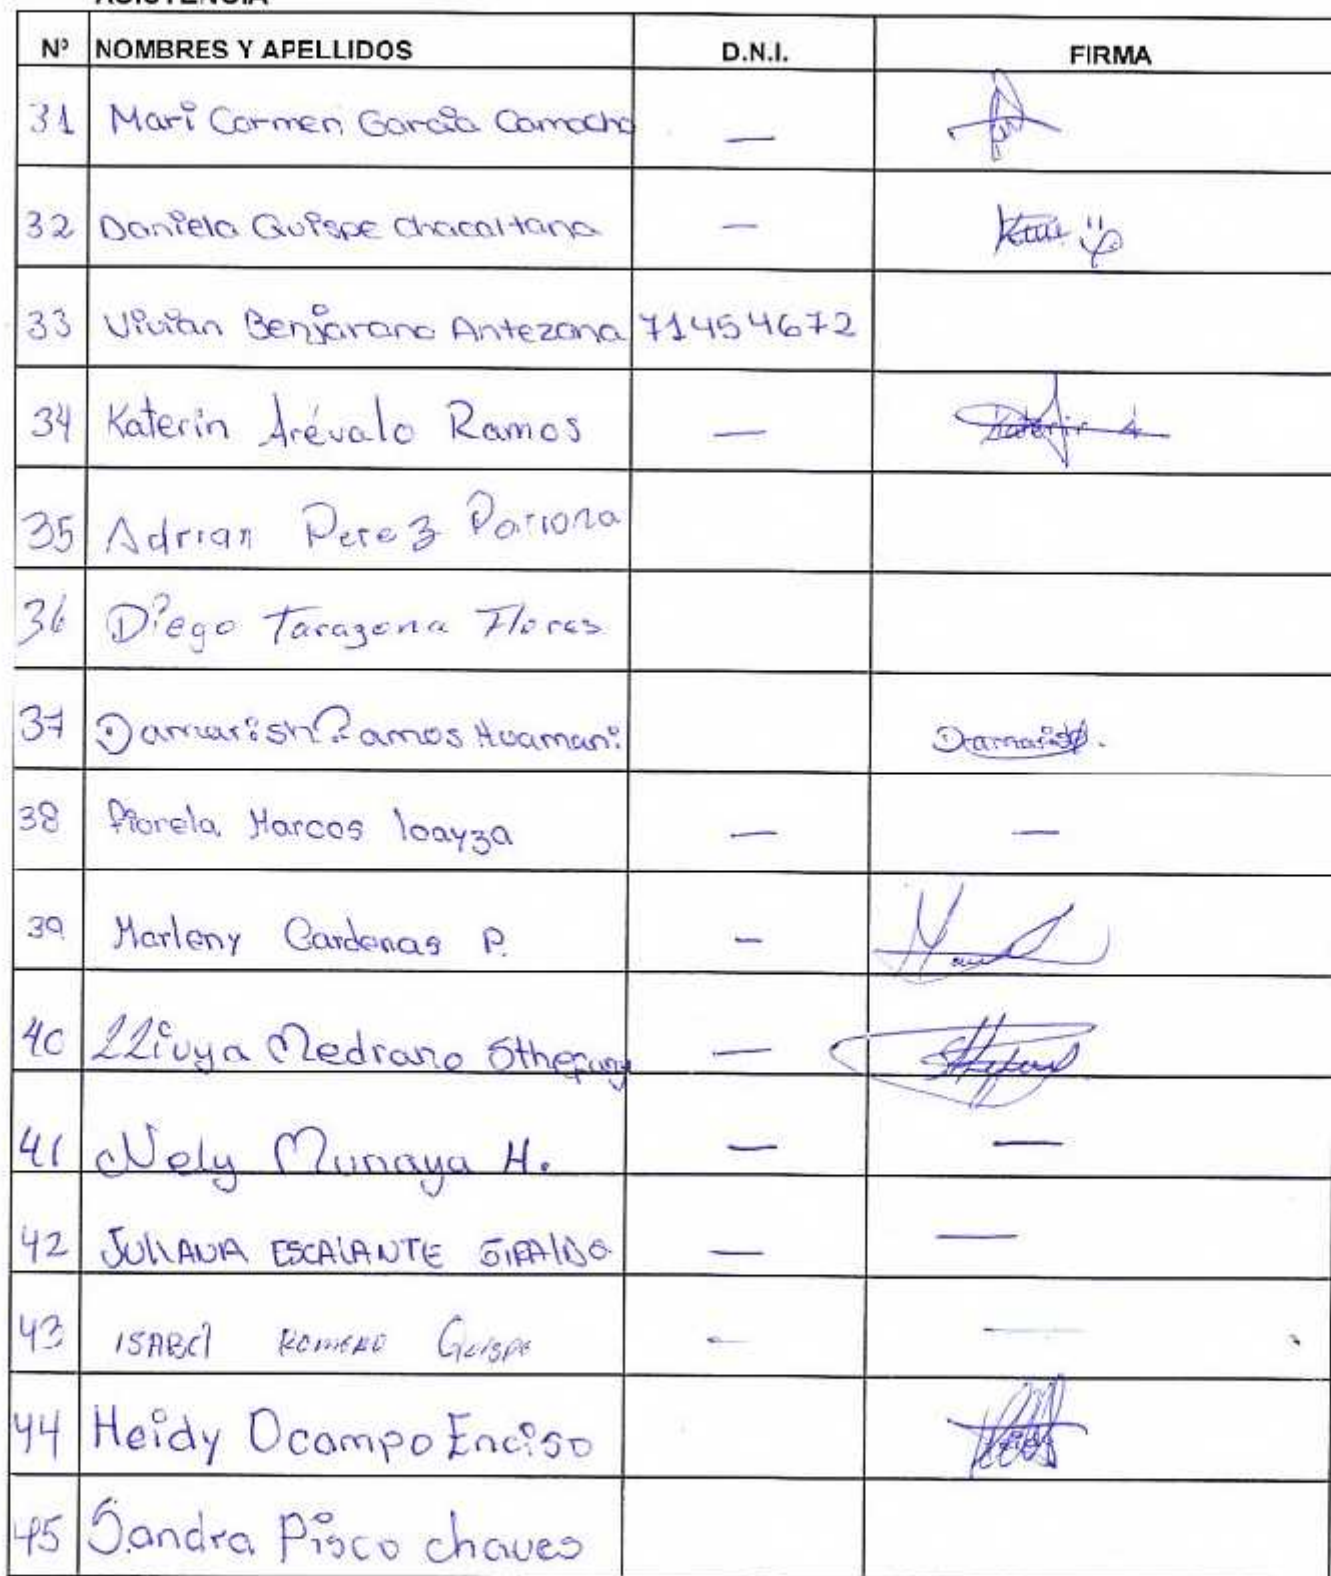 ASISTENCIA
Nº NOMBRES Y APELLIDOS D.N.I. FIRMA
31 Mari Carmen Garcia Camacho —
32 Daniela Quispe Chacaltana —
33 Vivian Benjarano Antezana 71454672
34 Katerin Arévalo Ramos — Katerin A
35 Adrian Perez Pariona
36 Diego Tarazona Flores
37 Damarish Ramos Huamani Damarish.
38 Fiorela Marcos loayza — —
39 Marleny Cardenas P. —
40 LLivya Medrano Sthefany —
41 Nely Munaya H. — —
42 JULIANA ESCALANTE GIRALDO — —
43 ISABEl ROMERO Quispe — —
44 Heidy Ocampo Enciso
45 Sandra Pisco chaves